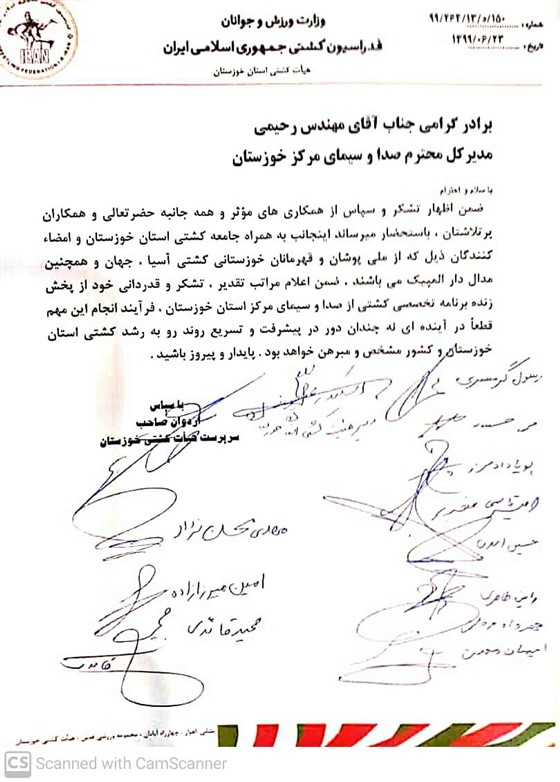 وزارت ورزش و جوانان
فدراسیون کشتی جمهوری اسلامی ایران
هیأت کشتی استان خوزستان
شماره : ۹۹/۲۶۲/۱۳/۵/۱۵۰
تاریخ : ۱۳۹۹/۰۶/۲۳
IRAN
برادر گرامی جناب آقای مهندس رحیمی
مدیر کل محترم صدا و سیمای مرکز خوزستان
با سلام و احترام
ضمن اظهار تشکر و سپاس از همکاری های مؤثر و همه جانبه حضرتعالی و همکاران
پرتلاشتان ، باستحضار میرساند اینجانب به همراه جامعه کشتی استان خوزستان و امضاء
کنندگان ذیل که از ملی پوشان و قهرمانان خوزستانی کشتی آسیا ، جهان و همچنین
مدال دار المپیک می باشند . ضمن اعلام مراتب تقدیر ، تشکر و قدردانی خود از پخش
زنده برنامه تخصصی کشتی از صدا و سیمای مرکز استان خوزستان ، فرآیند انجام این مهم
قطعاً در آینده ای نه چندان دور در پیشرفت و تسریع روند رو به رشد کشتی استان
خوزستان و کشور مشخص و مبرهن خواهد بود . پایدار و پیروز باشید .
با سپاس
اردوان صاحب
سرپرست هیأت کشتی خوزستان
رسول گرمسیری
پویا دادمرز
مهدی محسن نژاد
امین میرزازاده
مجید قائدی
نشانی : اهواز - چهارراه آبادان - مجموعه ورزشی قدس - هیأت کشتی خوزستان
CS Scanned with CamScanner